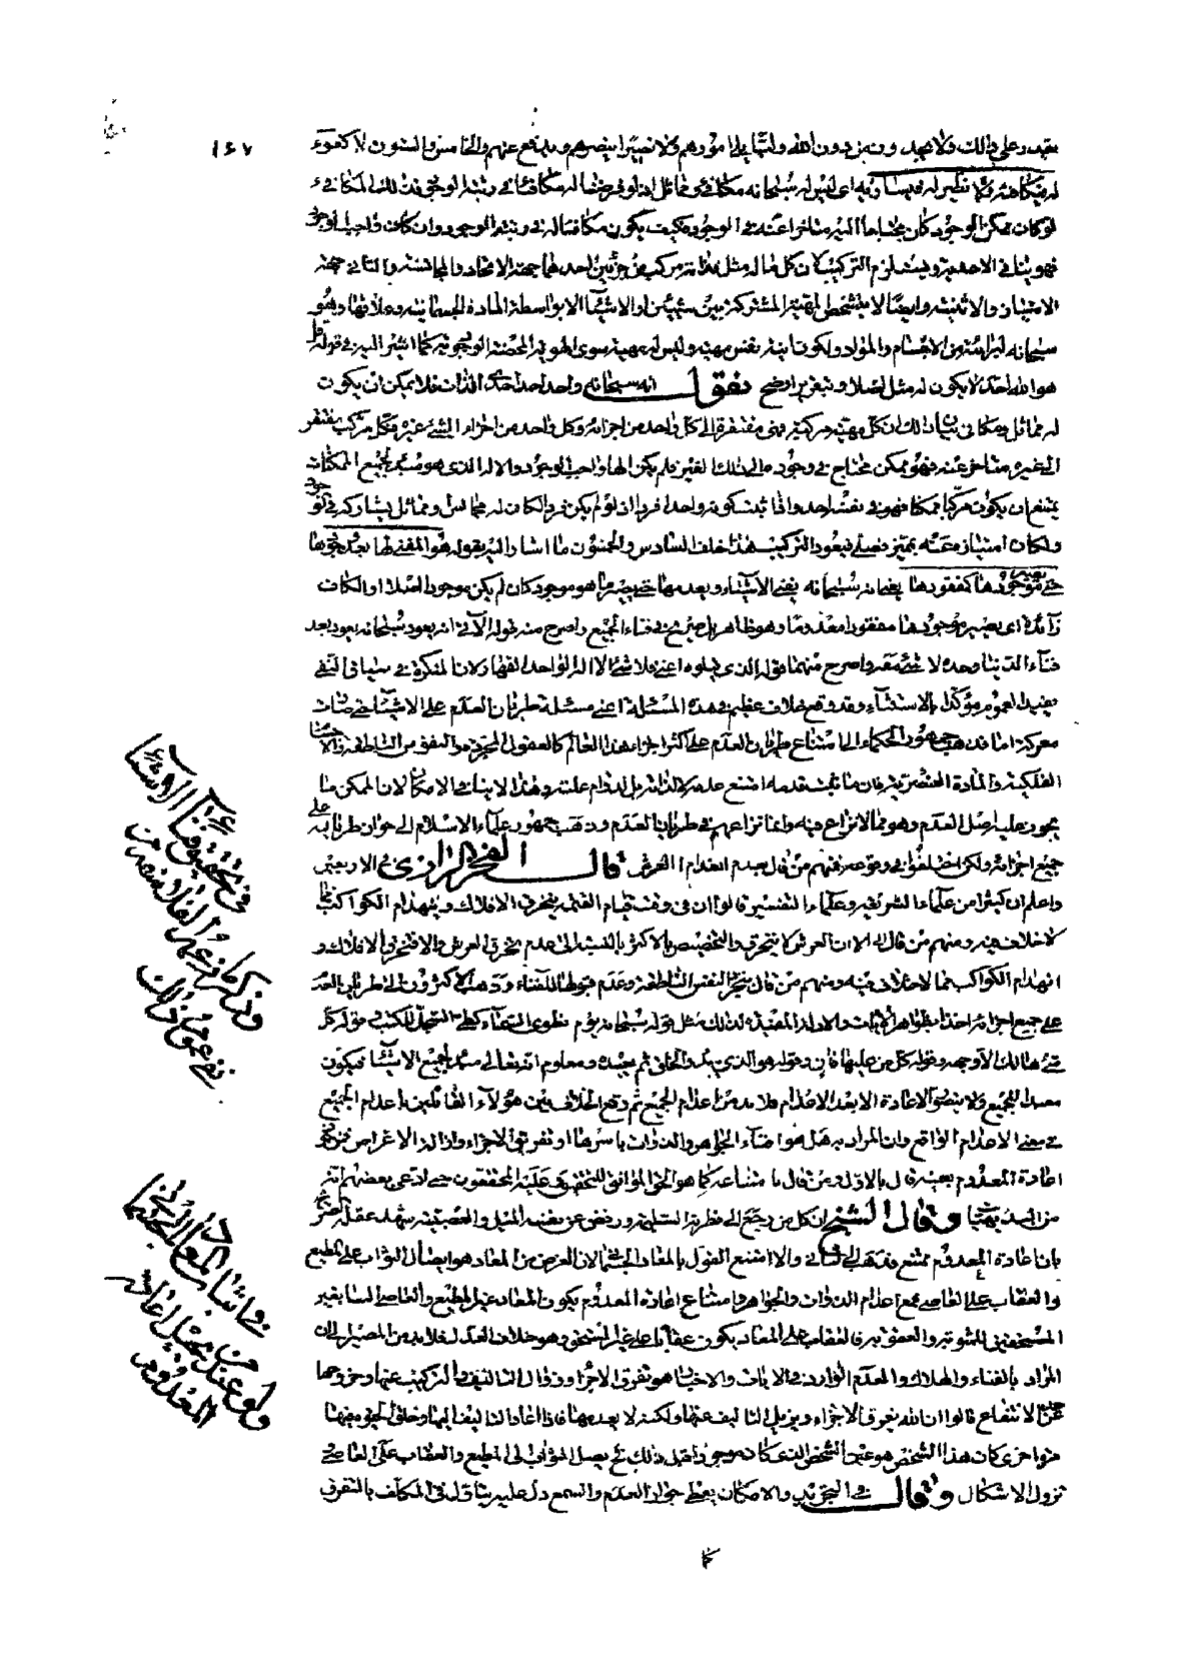 ١٤٧
يقيد وعلى ذلك ولا يجدون من دون الله وليا يلي أمورهم ولا نصيرا ينصرهم ويدفع عنهم والخامس والستون لا كفوء
له يكافئه ولا نظير له فيساويه اى ليس له سبحانه مكافئ ومماثل اذ لو فرضنا له مكافئا في رتبة الوجود فذلك المكافئ
لو كان ممكن الوجود كان محتاجا اليه متاخرا عنه في الوجود فكيف يكون مكافئا له في رتبة الوجود وان كان واجب الوجود
فهو ينافي الاحدية ويستلزم التركيب لان كل ما له مثل فذاته مركب من جزئين احدهما جهة الاتحاد والمجانسة والثاني جهة
الامتياز والاثنينية وايضا لا يتشخص المهية المشتركة بين شيئين او الاشياء الا بواسطة المادة الجسمانية وعلاقتها وهو
سبحانه لبرائته من الاجسام والمواد ولكون انيته نفس مهيته وليس له مهية سوى الهوية المحضة الوجوبية كما اشير اليه في قوله قل
هو الله احد لا يكون له مثل اصلا وبتقرير اوضح نقول انه سبحانه واحد احد احدى الذات فلا يمكن ان يكون
له مماثل ومكافى بيان ذلك ان كل مهية مركبة فهى مفتقرة الى كل واحد من اجزائه وكل واحد من اجزاء الشيء غيره فكل مركب يفتقر
الى غيره متاخر عنه فهو ممكن محتاج في وجوده الى ذلك الغير فلم يكن الها واجب الوجود والاله الذى هو مبدء لجميع الممكنات
يمتنع ان يكون مركبا ممكنا فهو في نفسه احد واذا ثبت كونه واحدا فردا اذ لو لم يكن فردا لكان له مجانس ومماثل يشاركه في الوجود
ولكان امتيازه عنه بمميز فصلي فيعود التركيب هذا خلف السادس والستون ما اشار اليه بقوله هو المفني لها بعد وجودها
حتى يصير موجودها كمفقودها يعني انه سبحانه يفني الاشياء ويعدمها حتى يصير ما هو موجود كان لم يكن موجودا اصلا او الكاف
زائدة اى يصير موجودها مفقودا معدوما وهو ظاهر بل صريح في فناء الجميع واصرح منه قوله الآتي انه يعود سبحانه بعد
فناء الدنيا وحده لا شئ معه واصرح منهما قوله الذى يتلوه اعني فلا شئ الا الله الواحد القهار لان النكرة في سياق النفي
يفيد العموم مؤكدا بالاستثناء وقد وقع خلاف عظيم في هذه المسئلة اعني مسئلة طريان العدم على الاشياء
فذهب جمهور الحكماء الى امتناع طريان العدم على اكثر اجزاء هذا العالم كالعقول المجردة والنفوس الناطقة والاجسام
الفلكية والمادة العنصرية فان ما ثبت قدمه امتنع عدمه لا لذاته بل لدوام علته وهذا لا ينافي الامكان لان الممكن ما
يجوز عليه اصل العدم وهو مما لا نزاع فيه وانما نزاعهم في طريان العدم وذهب جمهور علماء الاسلام الى جواز طريانه على
جميع اجزائه ولكن اختلفوا في وقوعه فمنهم من قال بعدم انعدام العرش قال الفخر الرازى في الاربعين
واعلم ان كثيرا من علماء الشريعة وعلماء التفسير قالوا ان في وقت قيام القيمة ينخرق الافلاك وينهدم الكواكب
لا خلاف فيه ومنهم من قال ان العرش لا ينخرق والتخصيص بالاكثر بالنسبة الى عدم تخرق العرش والا فتخرق الافلاك و
انهدام الكواكب مما لا خلاف فيه ومنهم من قال بتجرد النفس الناطقة وعدم قبولها للفناء وذهب الاكثرون الى طريان العدم
على جميع اجزائه اخذا بظواهر الآيات والادلة المفيدة لذلك مثل قوله سبحانه يوم نطوى السماء كطي السجل للكتب وقوله كل
شئ هالك الا وجهه وقوله كل من عليها فان وقوله هو الذى يبدء الخلق ثم يعيده ومعلوم انه تعالى مبدء لجميع الاشياء فيكون
معيدا للجميع ولا يتصور الاعادة الا بعد الاعدام فلا بد من اعدام الجميع ثم وقع الخلاف بين هؤلاء القائلين باعدام الجميع
في معنى الاعدام الواقع وان المراد به هل هو افناء الجواهر والذوات باسرها او تفريق الاجزاء وازالة الاعراض فمن جوز
اعادة المعدوم بعينه قال بالاول ومن قال بامتناعه كما هو الحق الموافق للتحقيق وعليه المحققون حتى ادعى بعضهم انه
من البديهيات وقال الشيخ ان كل من رجع الى فطرته السليمة ورفض عن نفسه الميل والعصبية شهد عقله الصريح
بان اعادة المعدوم ممتنع فذهب الى الثاني والا امتنع القول بالمعاد الجسماني لان الغرض من المعاد هو ايصال الثواب على المطيع
والعقاب على العاصي فمع اعدام الذوات والجواهر وامتناع اعادة المعدوم يكون المعاد غير المطيع والعاصي السابقين
المستحقين للمثوبة والعقوبة فالعقاب على المعاد يكون عقابا على غير المستحق وهو خلاف العدل فلا بد من المصير الى ان
المراد بالفناء والهلاك والعدم الوارد في الآيات والاخبار هو تفرق الاجزاء وزوال التاليف والتركيب عنها وخروجها
عن حيز الانتفاع قالوا ان الله يفرق الاجزاء ويزيل التاليف عنها ولكنه لا يعدمها فاذا اعاد التاليف اليها وخلق الحيوة فيها
مرة اخرى كان هذا الشخص هو عين الشخص الذى كان موجودا قبل ذلك فح يصل الثواب الى المطيع والعقاب على العاصي
تزول الاشكال وقال في التجريد والامكان يعطى جواز العدم والسمع دل عليه ويتاول في المكلف بالتفريق
كما
في تحقيق فناء الاشياء
وذكر ما ذهب الفلاسفة من
نفي عموم ذلك
في اثبات المعاد الجسماني
ولو عند من يحيل اعادة
المعدوم